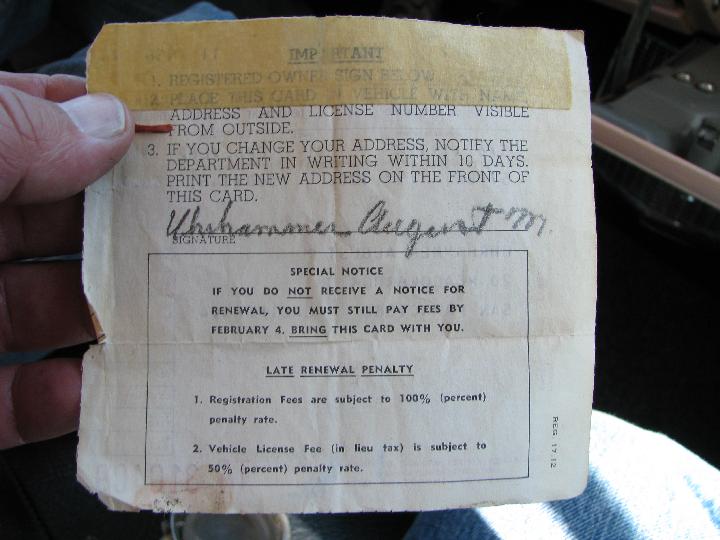 IMPORTANT
1. REGISTERED OWNER SIGN BELOW
2. PLACE THIS CARD IN VEHICLE WITH NAME,
ADDRESS AND LICENSE NUMBER VISIBLE
FROM OUTSIDE.
3. IF YOU CHANGE YOUR ADDRESS, NOTIFY THE
DEPARTMENT IN WRITING WITHIN 10 DAYS.
PRINT THE NEW ADDRESS ON THE FRONT OF
THIS CARD.
August M.
SIGNATURE
SPECIAL NOTICE
IF YOU DO NOT RECEIVE A NOTICE FOR
RENEWAL, YOU MUST STILL PAY FEES BY
FEBRUARY 4. BRING THIS CARD WITH YOU.
LATE RENEWAL PENALTY
1. Registration Fees are subject to 100% (percent)
penalty rate.
2. Vehicle License Fee (in lieu tax) is subject to
50% (percent) penalty rate.
REG 17.12